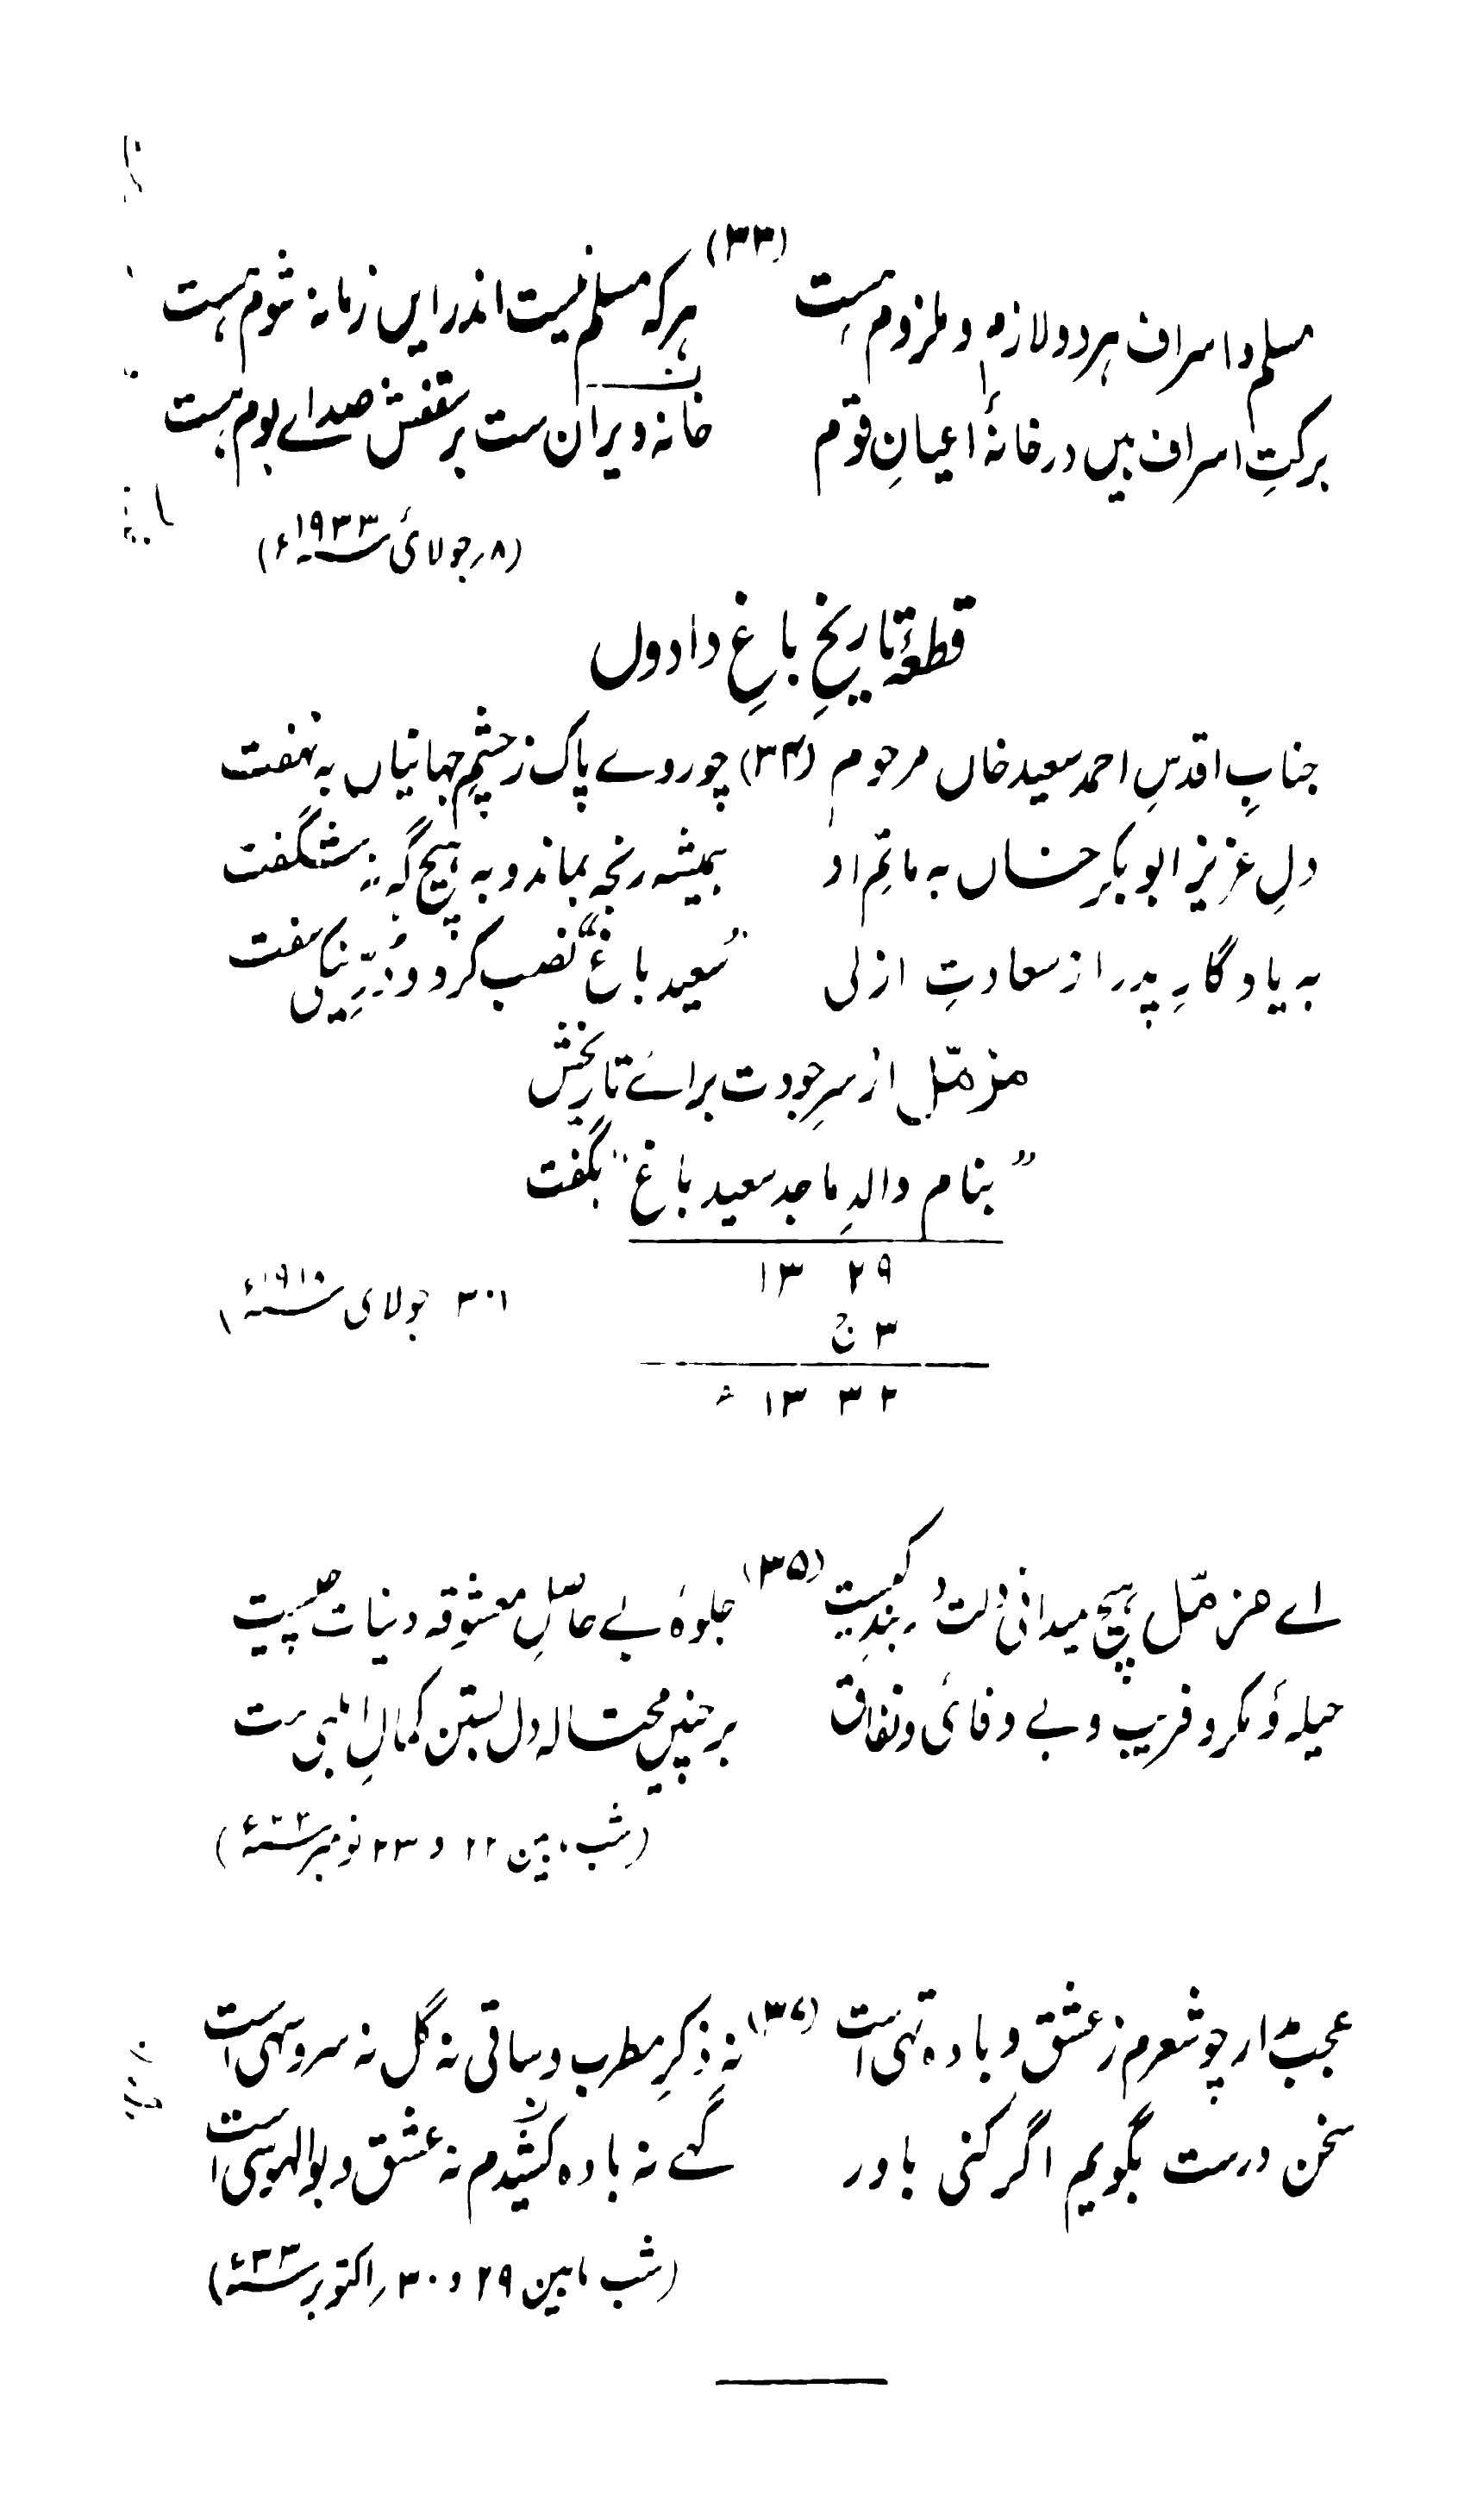 (۳۳)
مسلم و اسراف ہر دو لازم و ملزوم ہست ہر کہ مسلم نیست اندر ایں زمانہ شوم ہست
برکتِ اسراف بیں در خانۂ اعیانِ قوم خانہ ویران ست بر سقفش صدائے بوم ہست
(۸ر جولائی ۱۹۳۳ء)
قطعۂ تاریخِ باغِ دادوں
جنابِ اقدسِ احمد سعید خاں مرحوم (۳۴) چو روے پاک ز چشمِ جہانیاں بہ نہفت
دلِ عزیز ابوبکر خساں بہ ماتمِ او ہمیشہ رنجہ بماند و بہ ہیچ گہ نہ شگفت
بہ یادگارِ پدر از سعادتِ ازلی "سعید باغ" نصب کرد و
مزمّل از سرِ جودت برائے تاریخش
"بنام والدِ ماجد سعید باغ" بگفت
۱۳ ۲۹
۳
۱۳ ۳۲
۳۰ جولائی
اے مزمّل ہیچ میدانی (۳۵) جلوۂ بے حاصلِ معشوقہ دنیات چیست
حیلہ و مکر و فریب و بے وفائی و نفاق بر چنیں محتالہ دل بستن کمالِ ابلہی ست
(شب مابین ۲۲ و ۲۳ نومبر
عجب مدار چو شعرم ز عشق و بادہ تہی است (۳۶) نہ ذکرِ مطرب و ساقی نہ گل نہ سرو سہی است
سخن درست بگویم اگر کنی باور گہے نہ بادہ کشیدم نہ عشق و بوالہوسی است
(شب مابین ۲۹ و ۳۰ ر اکتوبر